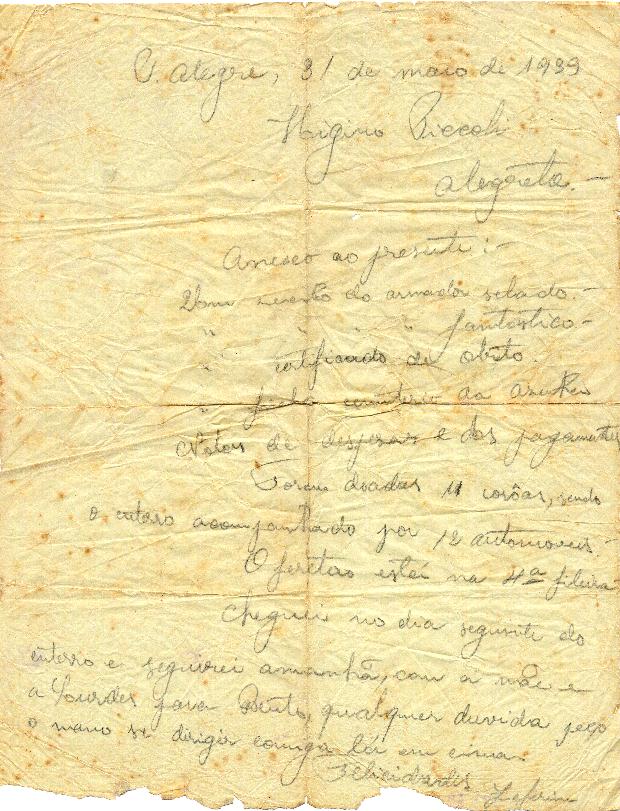 P. Alegre, 31 de maio de 1939
Higino Piccoli
Alegrete.-
Anexo ao presente :-
Uma do armador selado.-
" " " " fantastico.-
" certificado de obito.
" cemiterio da
Notas de despesas e dos pagamentos
Foram doadas 11 corôas, sendo
o enterro acompanhado por 12 automoveis.-
O feretro está na 4ª fileira
Cheguei no dia seguinte do
enterro e seguirei amanhã, com a mãe e
a Lourdes para Bento, qualquer duvida peço
o mano se dirigir comigo lá em cima.
Felicidades